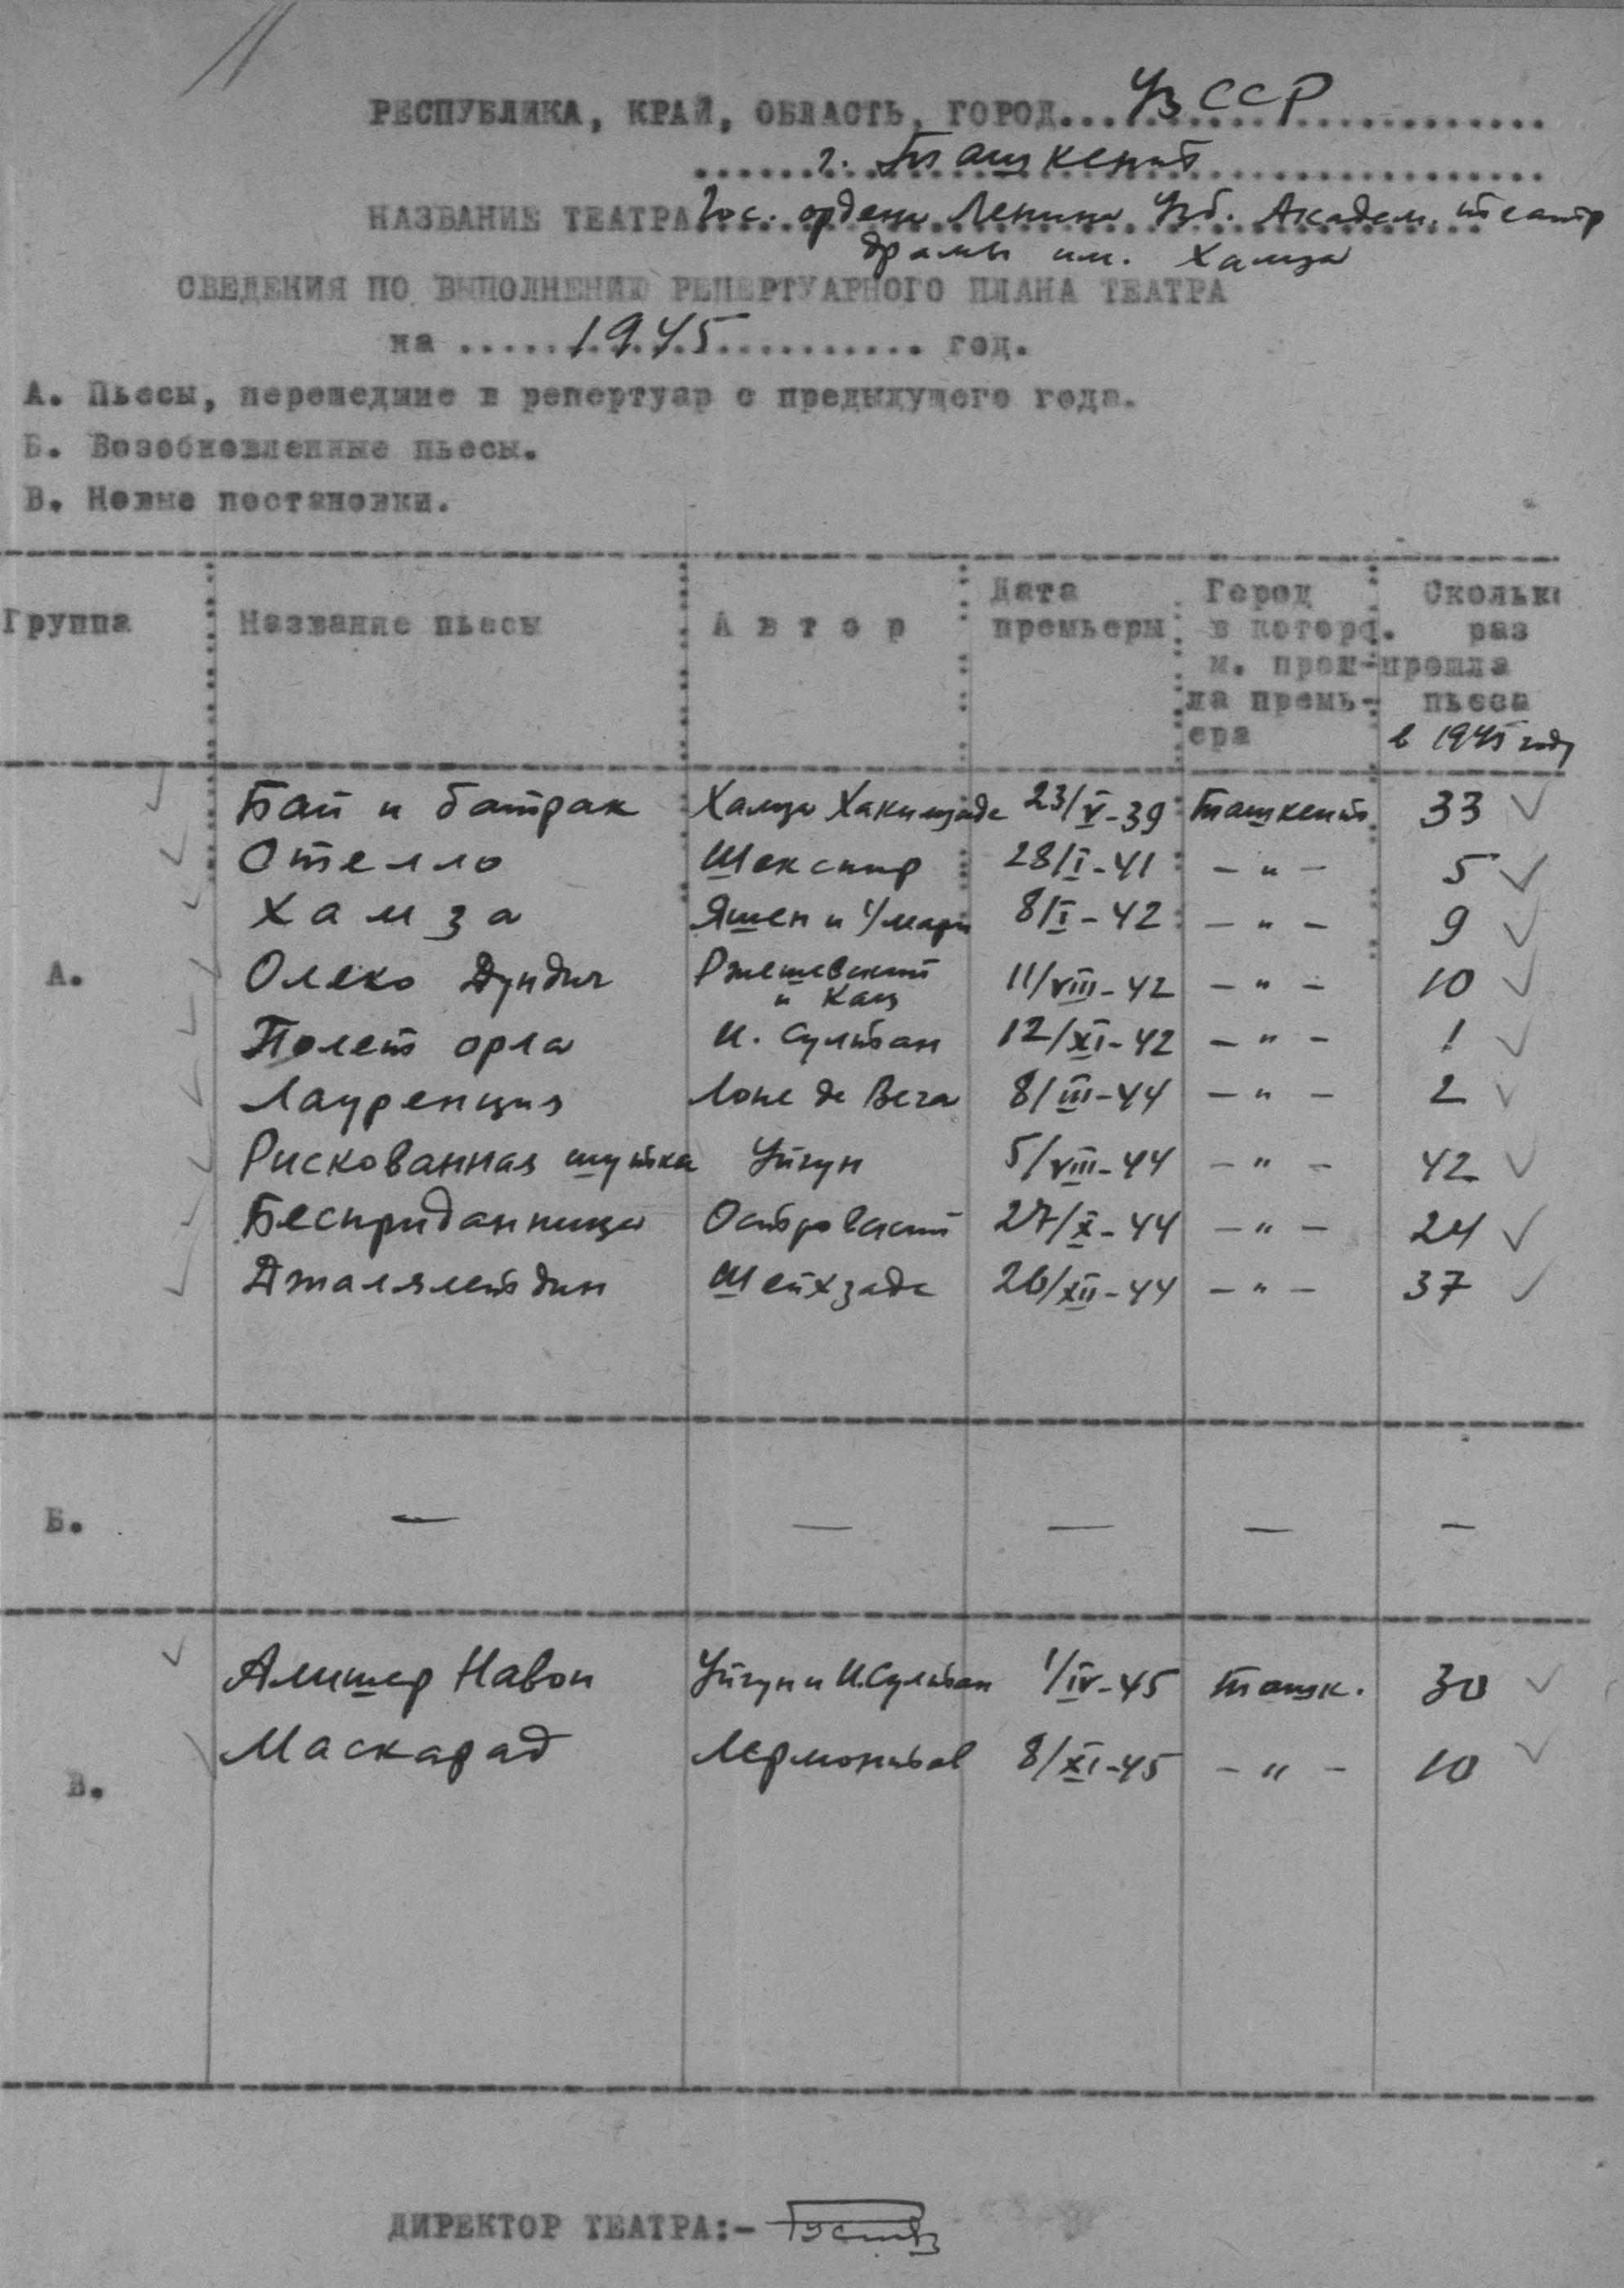 РЕСПУБЛИКА, КРАЙ, ОБЛАСТЬ, ГОРОД... УзССР
г. Ташкент
НАЗВАНИЕ ТЕАТРА Гос. ордена Ленина Узб. Академ. театр
драмы им. Хамза
СВЕДЕНИЯ ПО ВЫПОЛНЕНИЮ РЕПЕРТУАРНОГО ПЛАНА ТЕАТРА
на ..... 1945 ........... год.
А. Пьесы, перешедшие в репертуар с предыдущего года.
Б. Возобновленные пьесы.
В. Новые постановки.
Группа Название пьесы Автор Дата премьеры Город в которо. м. прош-ла премь-ера Скольк раз прошла пьеса в 1945 году
А.
Бай и батрак Хамза Хакимзаде 23/V-39 Ташкент 33
Отелло Шекспир 28/I-41 - " - 5
Хамза Яшен и Умари 8/I-42 - " - 9
Олеко Дундич Ржешевский и Кац 11/VIII-42 - " - 10
Полет орла И. Султан 12/XI-42 - " - 1
Лауренция Лопе де Вега 8/III-44 - " - 2
Рискованная шутка Уйгун 5/VIII-44 - " - 42
Бесприданница Островский 27/X-44 - " - 24
Джалялетдин Шейхзаде 26/XII-44 - " - 37
Б. — — — — —
В.
Алишер Навои Уйгун и И.Султан 1/IV-45 Ташк. 30
Маскарад Лермонтов 8/XI-45 - " - 10
ДИРЕКТОР ТЕАТРА:-